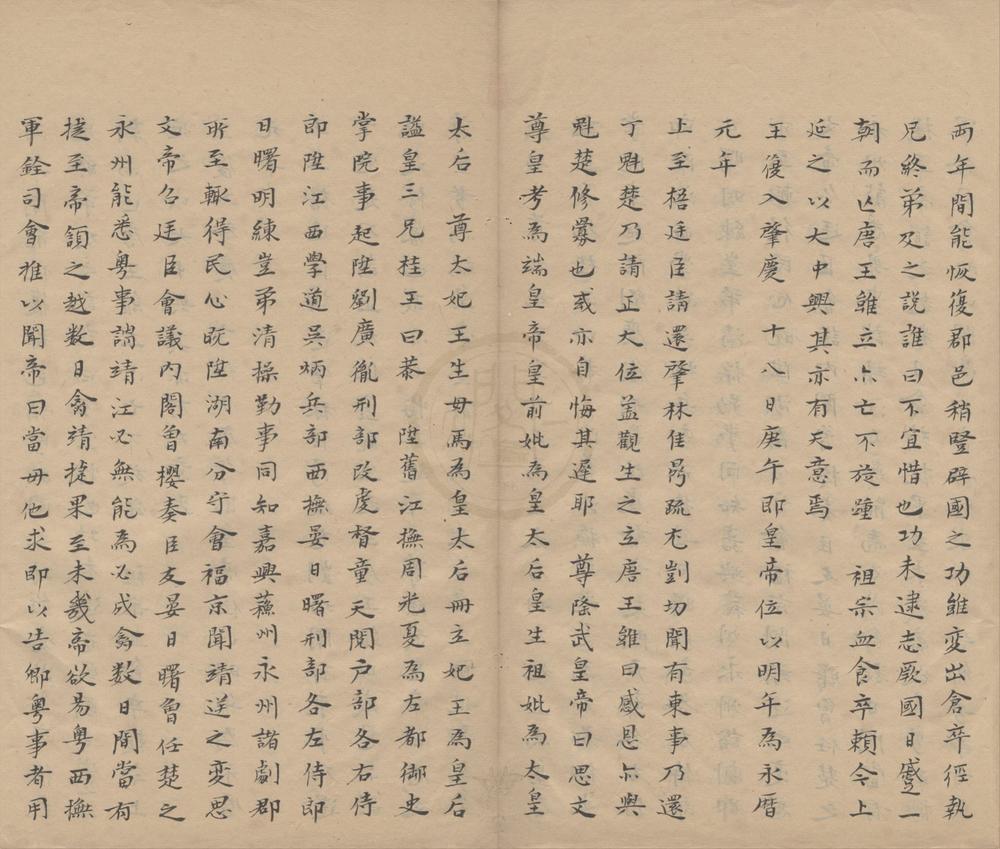 兩年間能恢復郡邑稍豎辟國之功雖变出倉卒徑執
兄終弟及之說誰曰不宜惜也功未逮志厥國日蹙一
朝而亡唐王雖立亦亡不旋踵 祖宗血食卒賴今上
延之以大中興其亦有天意焉
王復入肇慶 十八日庚午即皇帝位以明年為永曆
元年
上至梧廷臣請還肇林佳鼎疏尤剴切聞有東事乃還
丁魁楚乃請正大位盖觀生之立唐王雖曰感恩亦與
魁楚修釁也或亦自悔其遲耶 尊隆武皇帝曰思文
尊皇考為端皇帝皇前妣為皇太后皇生祖妣為太皇
太后 尊太妃王生母馬為皇太后冊立妃王為皇后
謚皇三兄桂王曰恭 陞舊江撫周光夏為左都御史
掌院事起陞劉廣胤刑部改虔督童天閱戶部各右侍
郎陞江西學道吳炳兵部西撫晏日曙刑部各左侍郎
日曙明練豈弟清操勤事同知嘉興蘓州永州諸劇郡
所至輒得民心旣陞湖南分守會福京聞靖逆之变思
文帝召廷臣會議內閣曾櫻奏臣友晏日曙曾任楚之
永州能悉粤事謂靖江必無能為必成禽数日間當有
捷至帝頷之越数日禽靖捷果至未幾帝欲易粤西撫
軍銓司會推以聞帝曰當毋他求即以告卿粤事者用